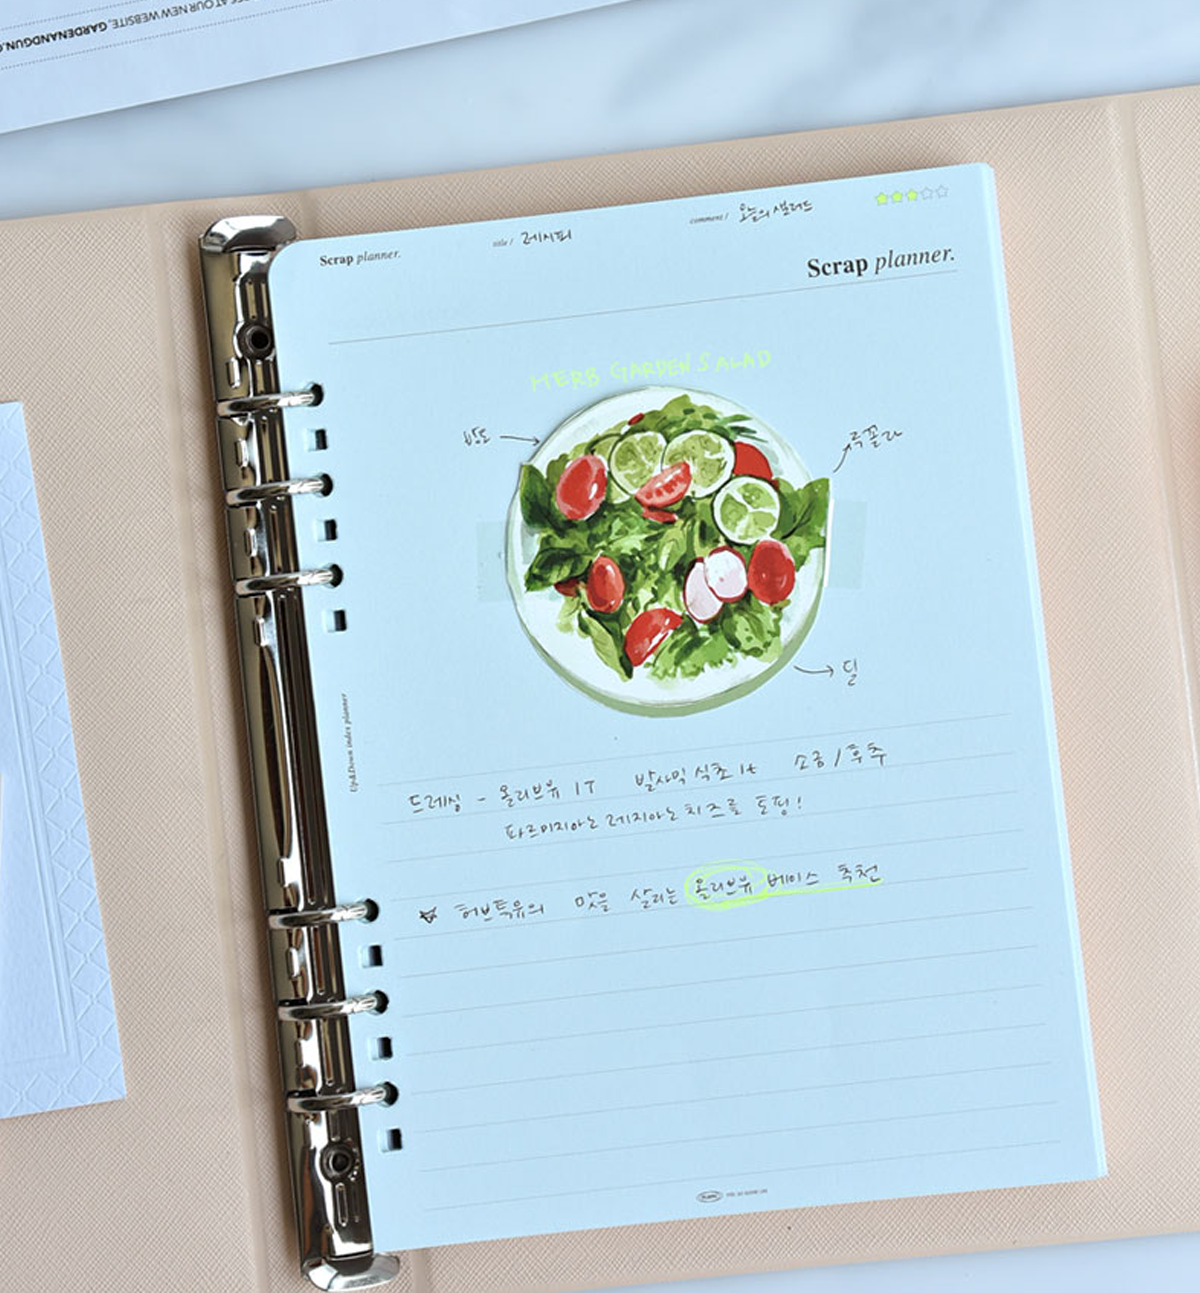 AT OUR NEW WEBSITE, GARDENANDGUN.
Scrap planner.
title / 레시피
comment / 오늘의 샐러드
Scrap planner.
HERB GARDEN SALAD
방도
루꼴라
딜
Up&Down index planner
드레싱 - 올리브유 1T 발사믹 식초 1t 소금/후추
파르미지아노 레지아노 치즈를 토핑!
☆ 허브특유의 맛을 살리는 올리브유 베이스 추천